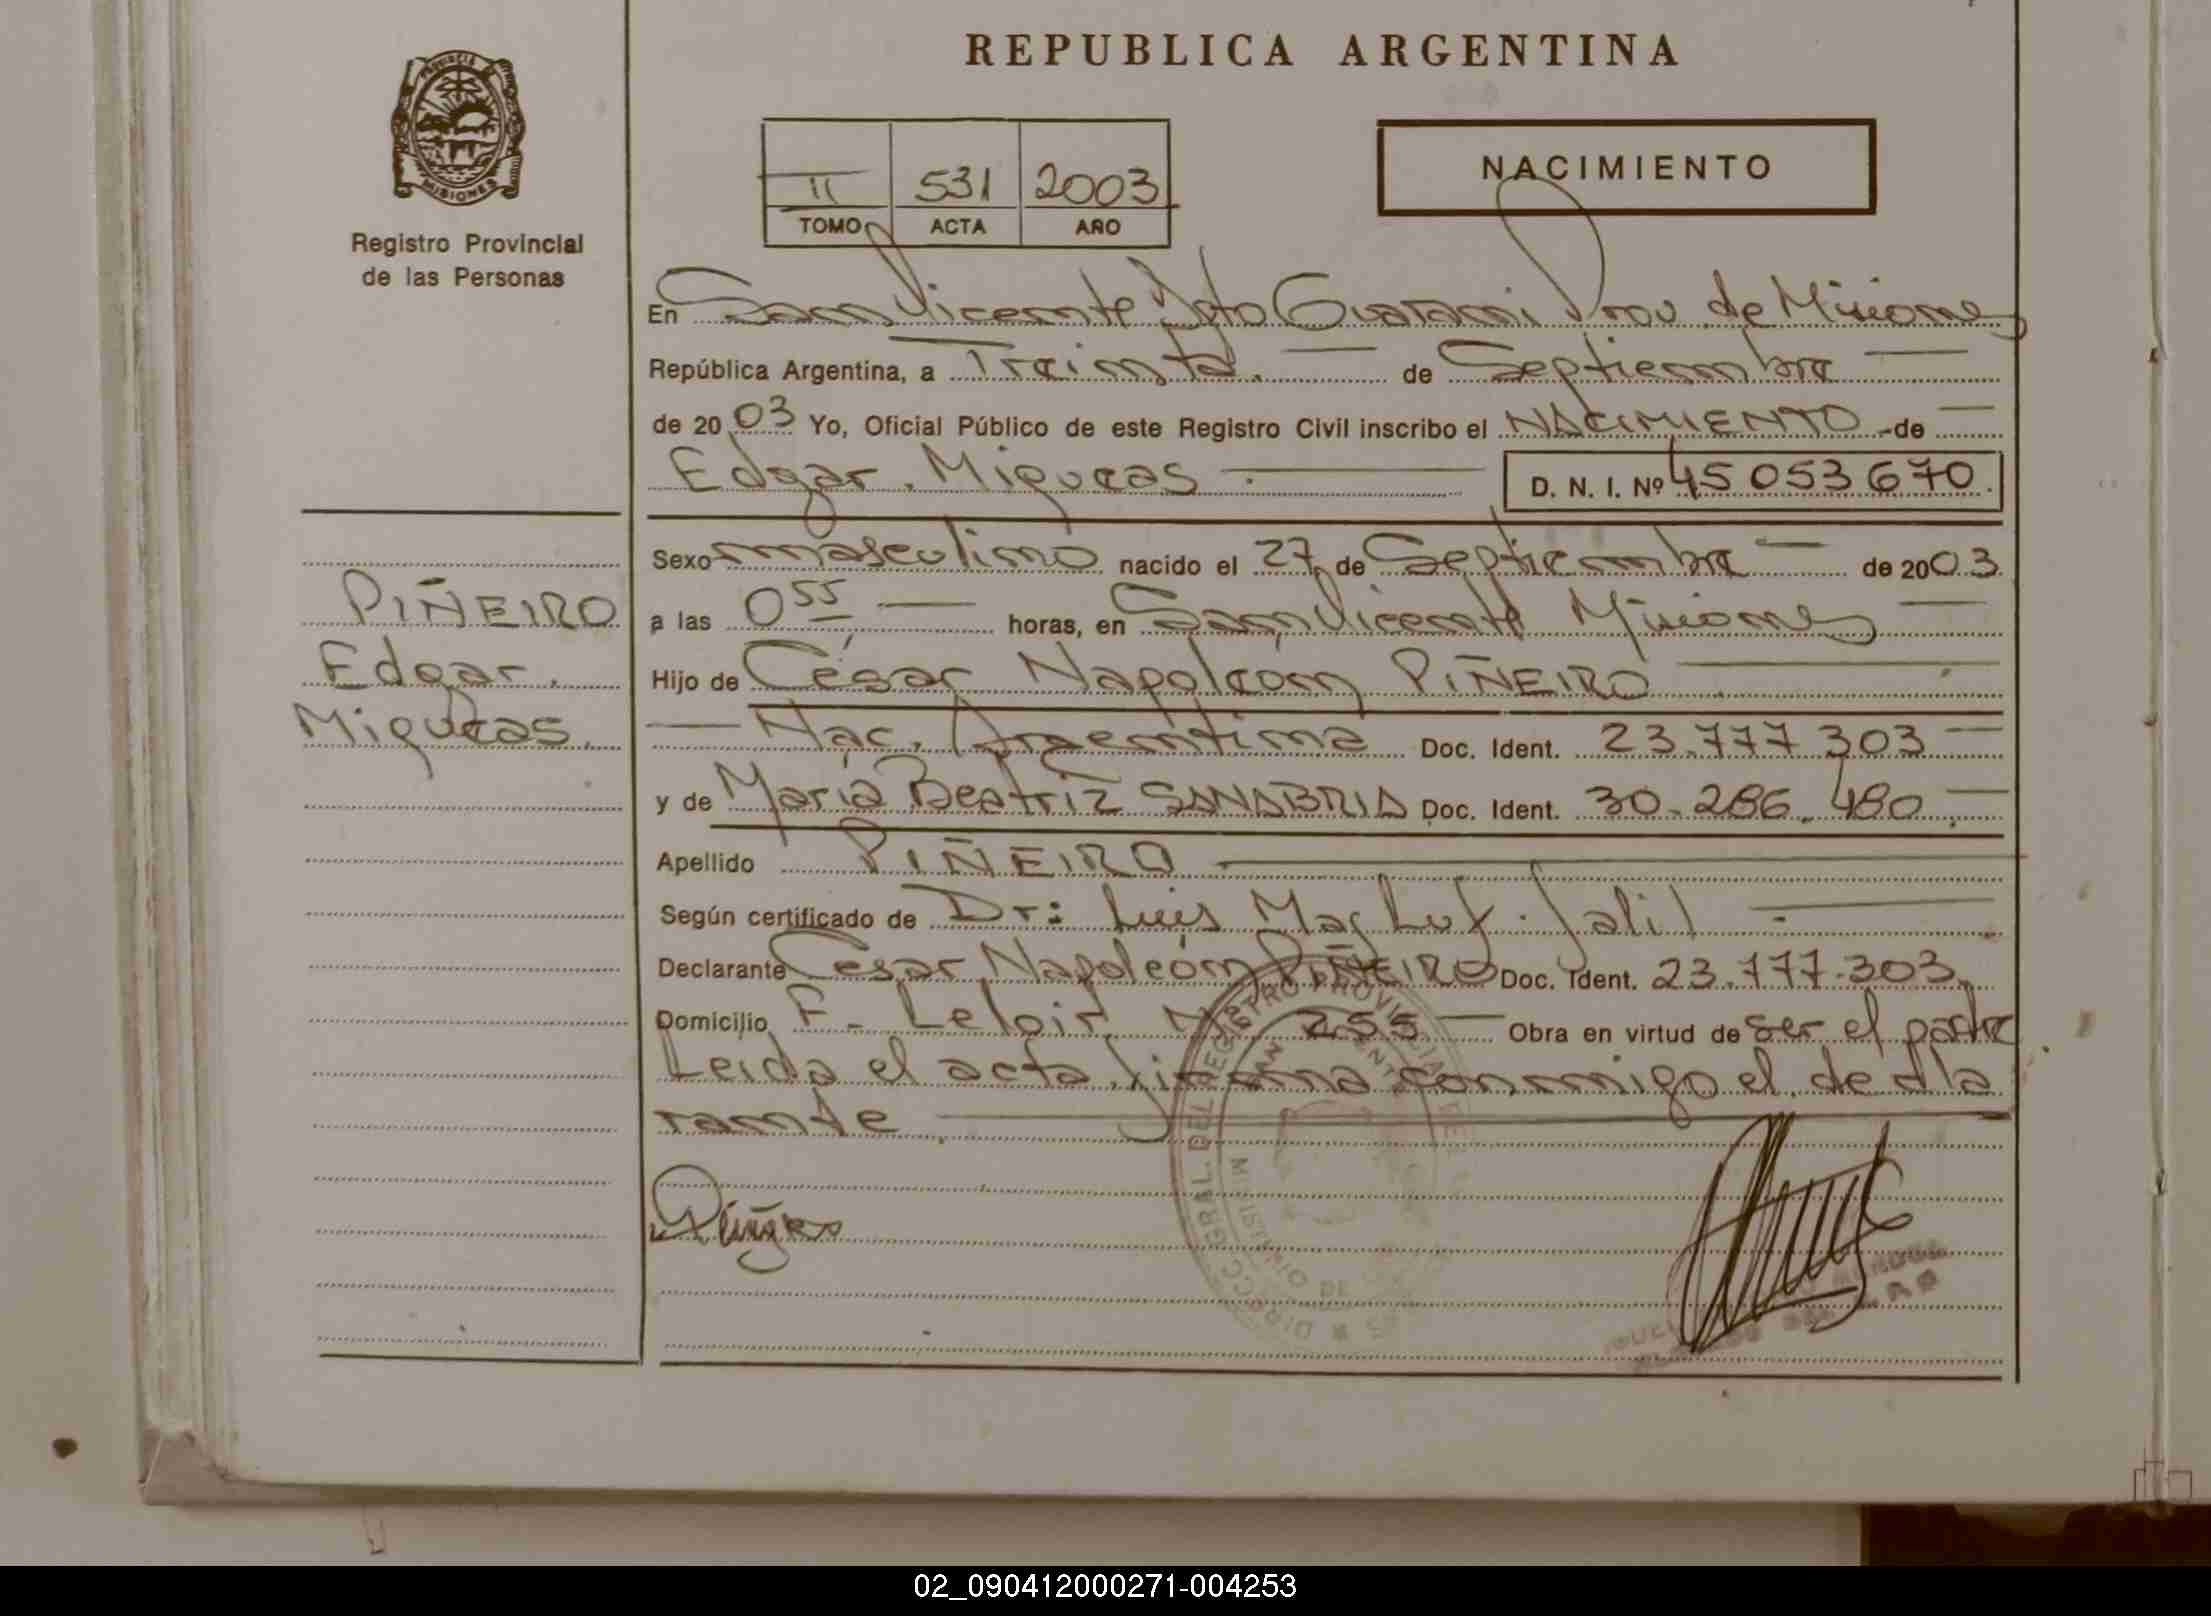 REPUBLICA ARGENTINA
PROVINCIA DE
MISIONES
Registro Provincial
de las Personas
II 531 2003
TOMO ACTA AÑO
NACIMIENTO
En San Vicente Dpto Guaraní Prov de Misiones
República Argentina, a Treinta. de Septiembre
de 20 03 Yo, Oficial Público de este Registro Civil inscribo el NACIMIENTO de
Edgar Miqueas D. N. I. Nº 45 053 670.
Sexo masculino nacido el 27 de Septiembre de 2003
a las 0 55 horas, en San Vicente Misiones
Hijo de César Napoleón PIÑEIRO
Nac. Argentina Doc. Ident. 23.777.303
y de María Beatriz SANABRIA Doc. Ident. 30.286.480
Apellido PIÑEIRO
Según certificado de Dr: Luis Jalil
Declarante Cesar Napoleón PIÑEIRO Doc. Ident. 23.777.303
Domicilio F. Leloir Nº 255 Obra en virtud de ser el padre
Leida el acta firma conmigo el decla
rante.
PIÑEIRO
Edgar.
Miqueas.
DIRECC. GRAL. DEL REGISTRO PROVINCIAL DE
SAN VICENTE
MISIONES
02_090412000271-004253